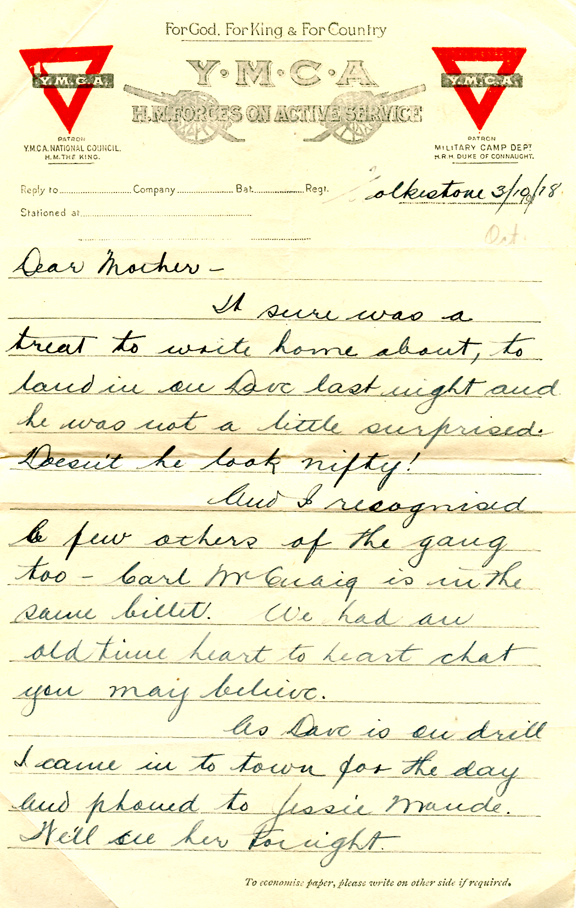 For God, For King & For Country
Y·M·C·A
H.M. FORCES ON ACTIVE SERVICE
Y.M.C.A.
PATRON
Y.M.C.A. NATIONAL COUNCIL.
H.M. THE KING.
Y.M.C.A.
PATRON
MILITARY CAMP DEPT
H.R.H DUKE OF CONNAUGHT.
Reply to Company Bat. Regt.
Folkestone 3/10/18
Stationed at
Oct.
Dear Mother –
It sure was a
treat to write home about, to
land in on Dave last night and
he was not a little surprised.
Doesn't he look nifty!
And I recognised
a few others of the gang
too – Carl McCuaig is in the
same billet. We had an
old time heart to heart chat
you may believe.
As Dave is on drill
I came in to town for the day
and phoned to Jessie Maude.
We'll see her tonight.
To economise paper, please write on other side if required.